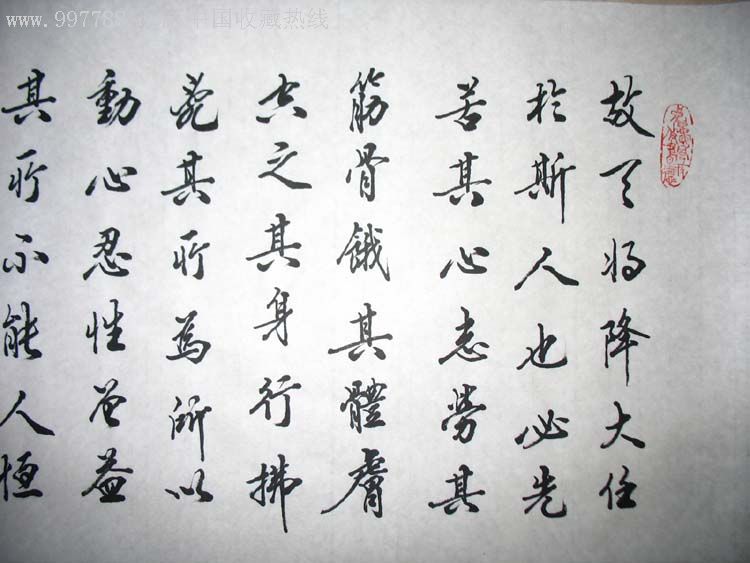 www.997788.com 中国收藏热线
故天将降大任
於斯人也必先
苦其心志勞其
筋骨餓其體膚
空乏其身行拂
亂其所為所以
動心忍性曾益
其所不能人恒